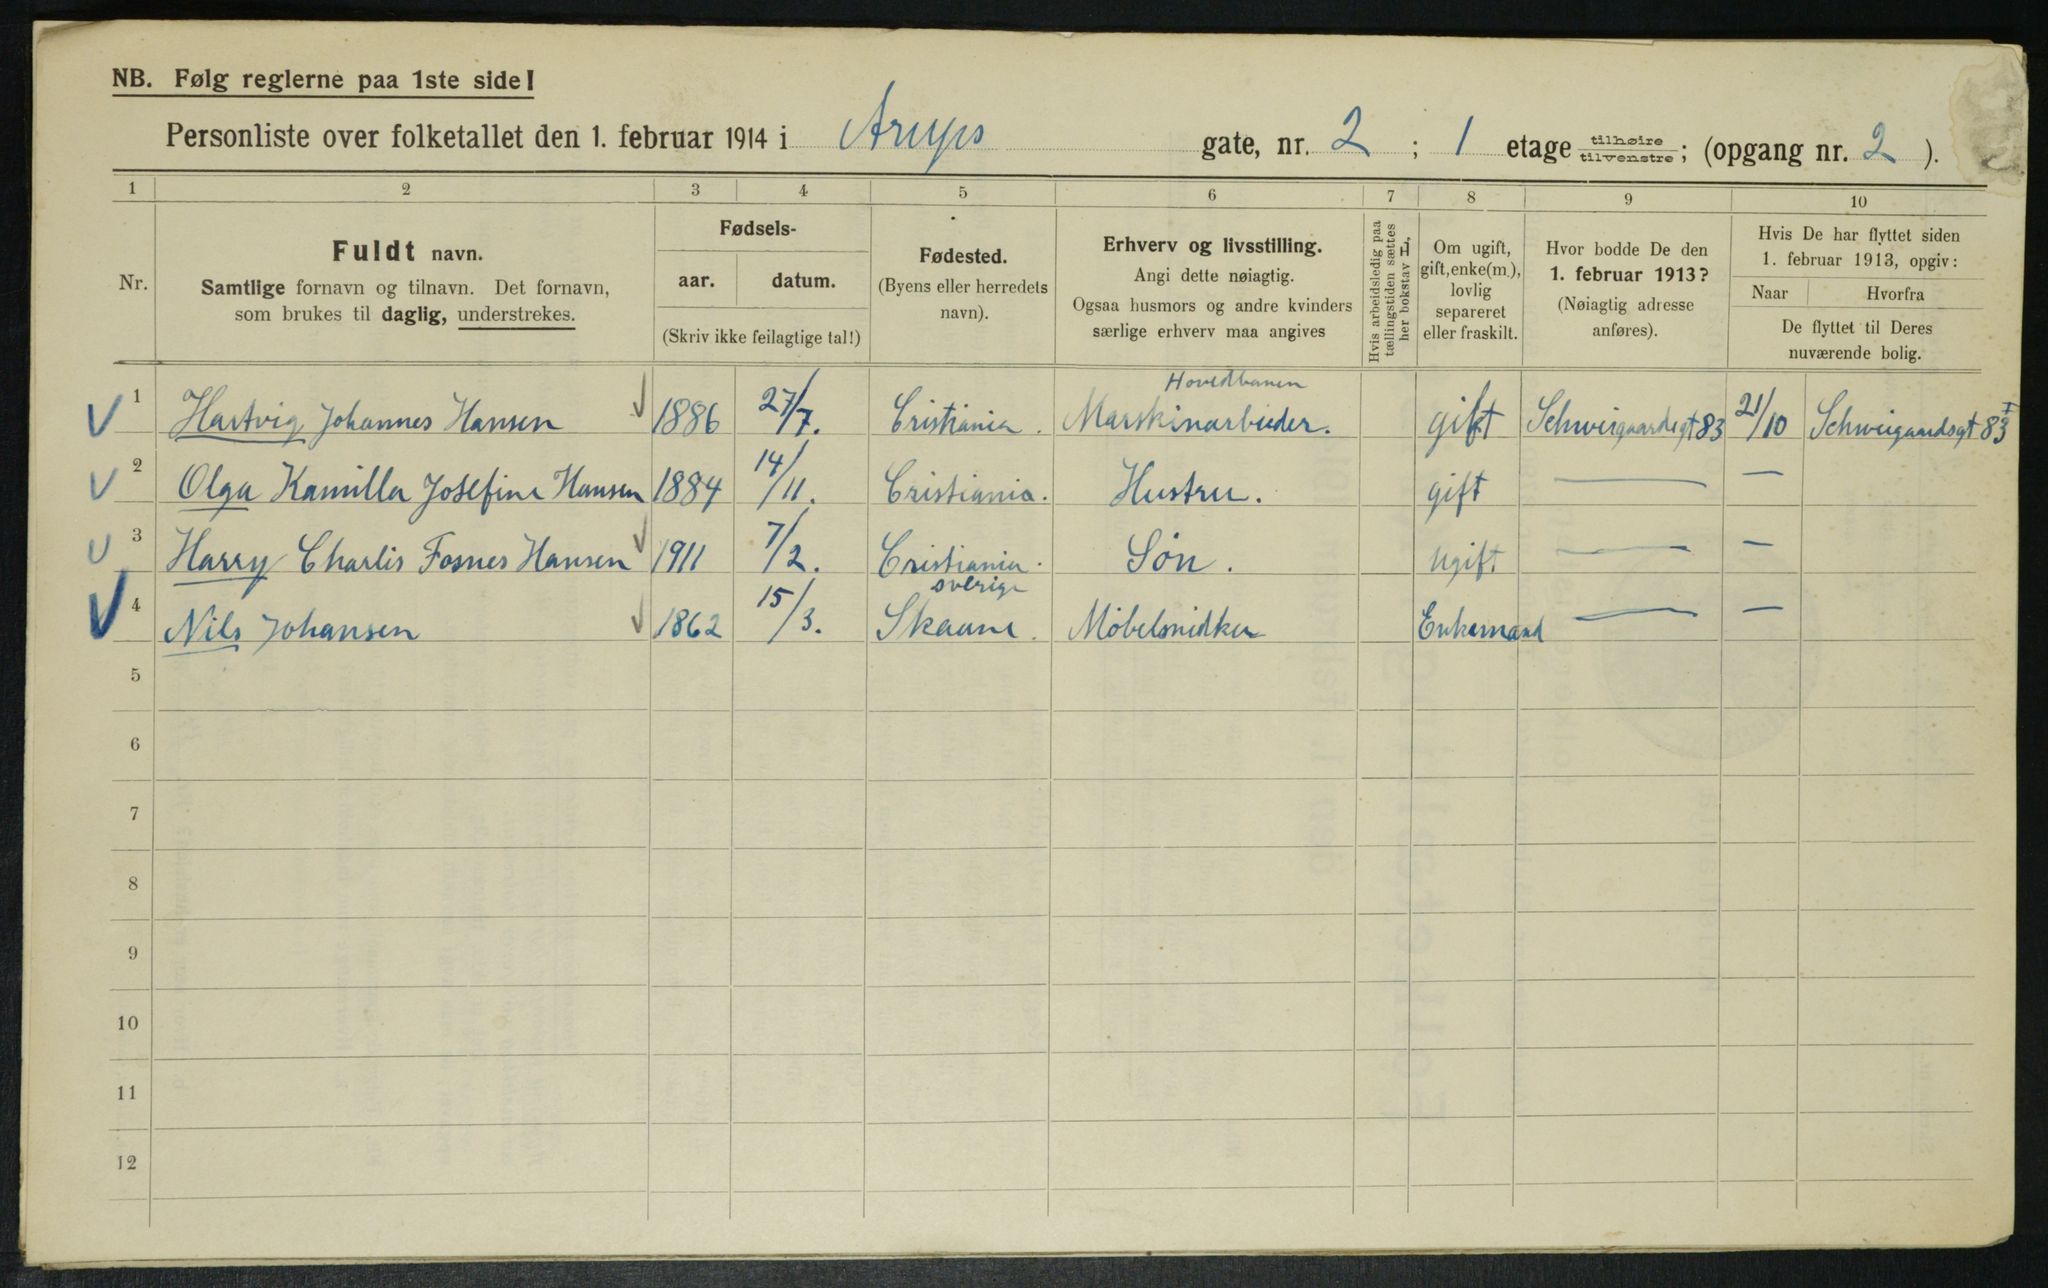 NB. Følg reglerne paa 1ste side!
Personliste over folketallet den 1. februar 1914 i Arups gate, nr. 2 ; 1 etage tilhøire tilvenstre ; (opgang nr. 2 ).
1 2 3 4 5 6 7 8 9 10
Nr.
Fuldt navn.
Samtlige fornavn og tilnavn. Det fornavn,
som brukes til daglig, understrekes.
Fødsels-
aar. datum.
(Skriv ikke feilagtige tal!)
Fødested.
(Byens eller herredets
navn).
Erhverv og livsstilling.
Angi dette nøiagtig.
Ogsaa husmors og andre kvinders
særlige erhverv maa angives
Hvis arbeidsledig paa
tællingstiden sættes
her bokstav L.
Om ugift,
gift, enke(m.),
lovlig
separeret
eller fraskilt.
Hvor bodde De den
1. februar 1913?
(Nøiagtig adresse
anføres).
Hvis De har flyttet siden
1. februar 1913, opgiv:
Naar Hvorfra
De flyttet til Deres
nuværende bolig.
Hovedbanen
1 Hartvig Johannes Hansen 1886 27/7. Cristiania. Marskinarbeider. gift Schweigaardsgt 83 21/10 Schweigaardsgt 83 I
2 Olga Kamilla Josefine Hansen 1884 14/11. Cristiania. Hustru. gift — —
3 Harry Charlis Fosnes Hansen 1911 7/2. Cristiania. Søn. ugift. — —
sverige
4 Nils Johansen 1862 15/3. Skaane. Møbelsnidker Enkemand — —
5
6
7
8
9
10
11
12